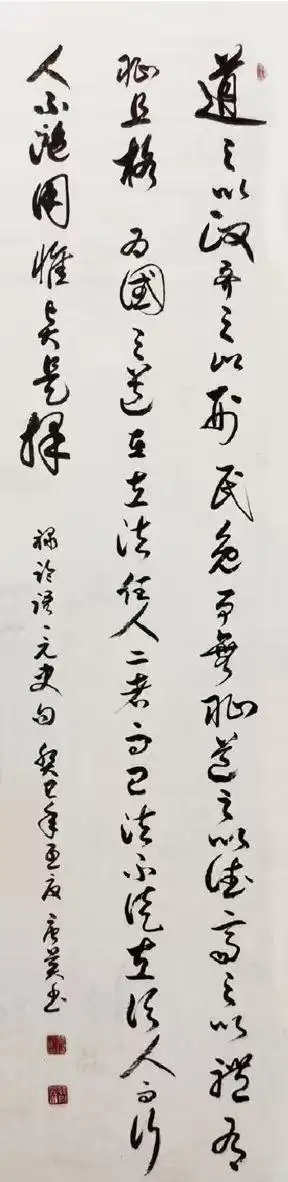 道之以政齊之以刑民免而無恥道之以德齊之以禮有
恥且格為國之道在立法任人二者而已法不徒立須人而行
人不濫用惟賢是擇
錄論語、元史句癸巳年書